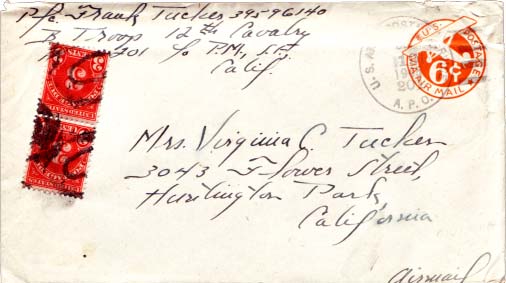 Pfc. Frank Tucker 39596140
B Troop 12th Cavalry
201 c/o P.M., S.F.
Calif.
U.S. POSTAGE
6¢
VIA AIR MAIL
U.S. AR
20
A.P.O.
Mrs. Virginia C. Tucker
3043 Flower Street,
Huntington Park,
California
Airmail